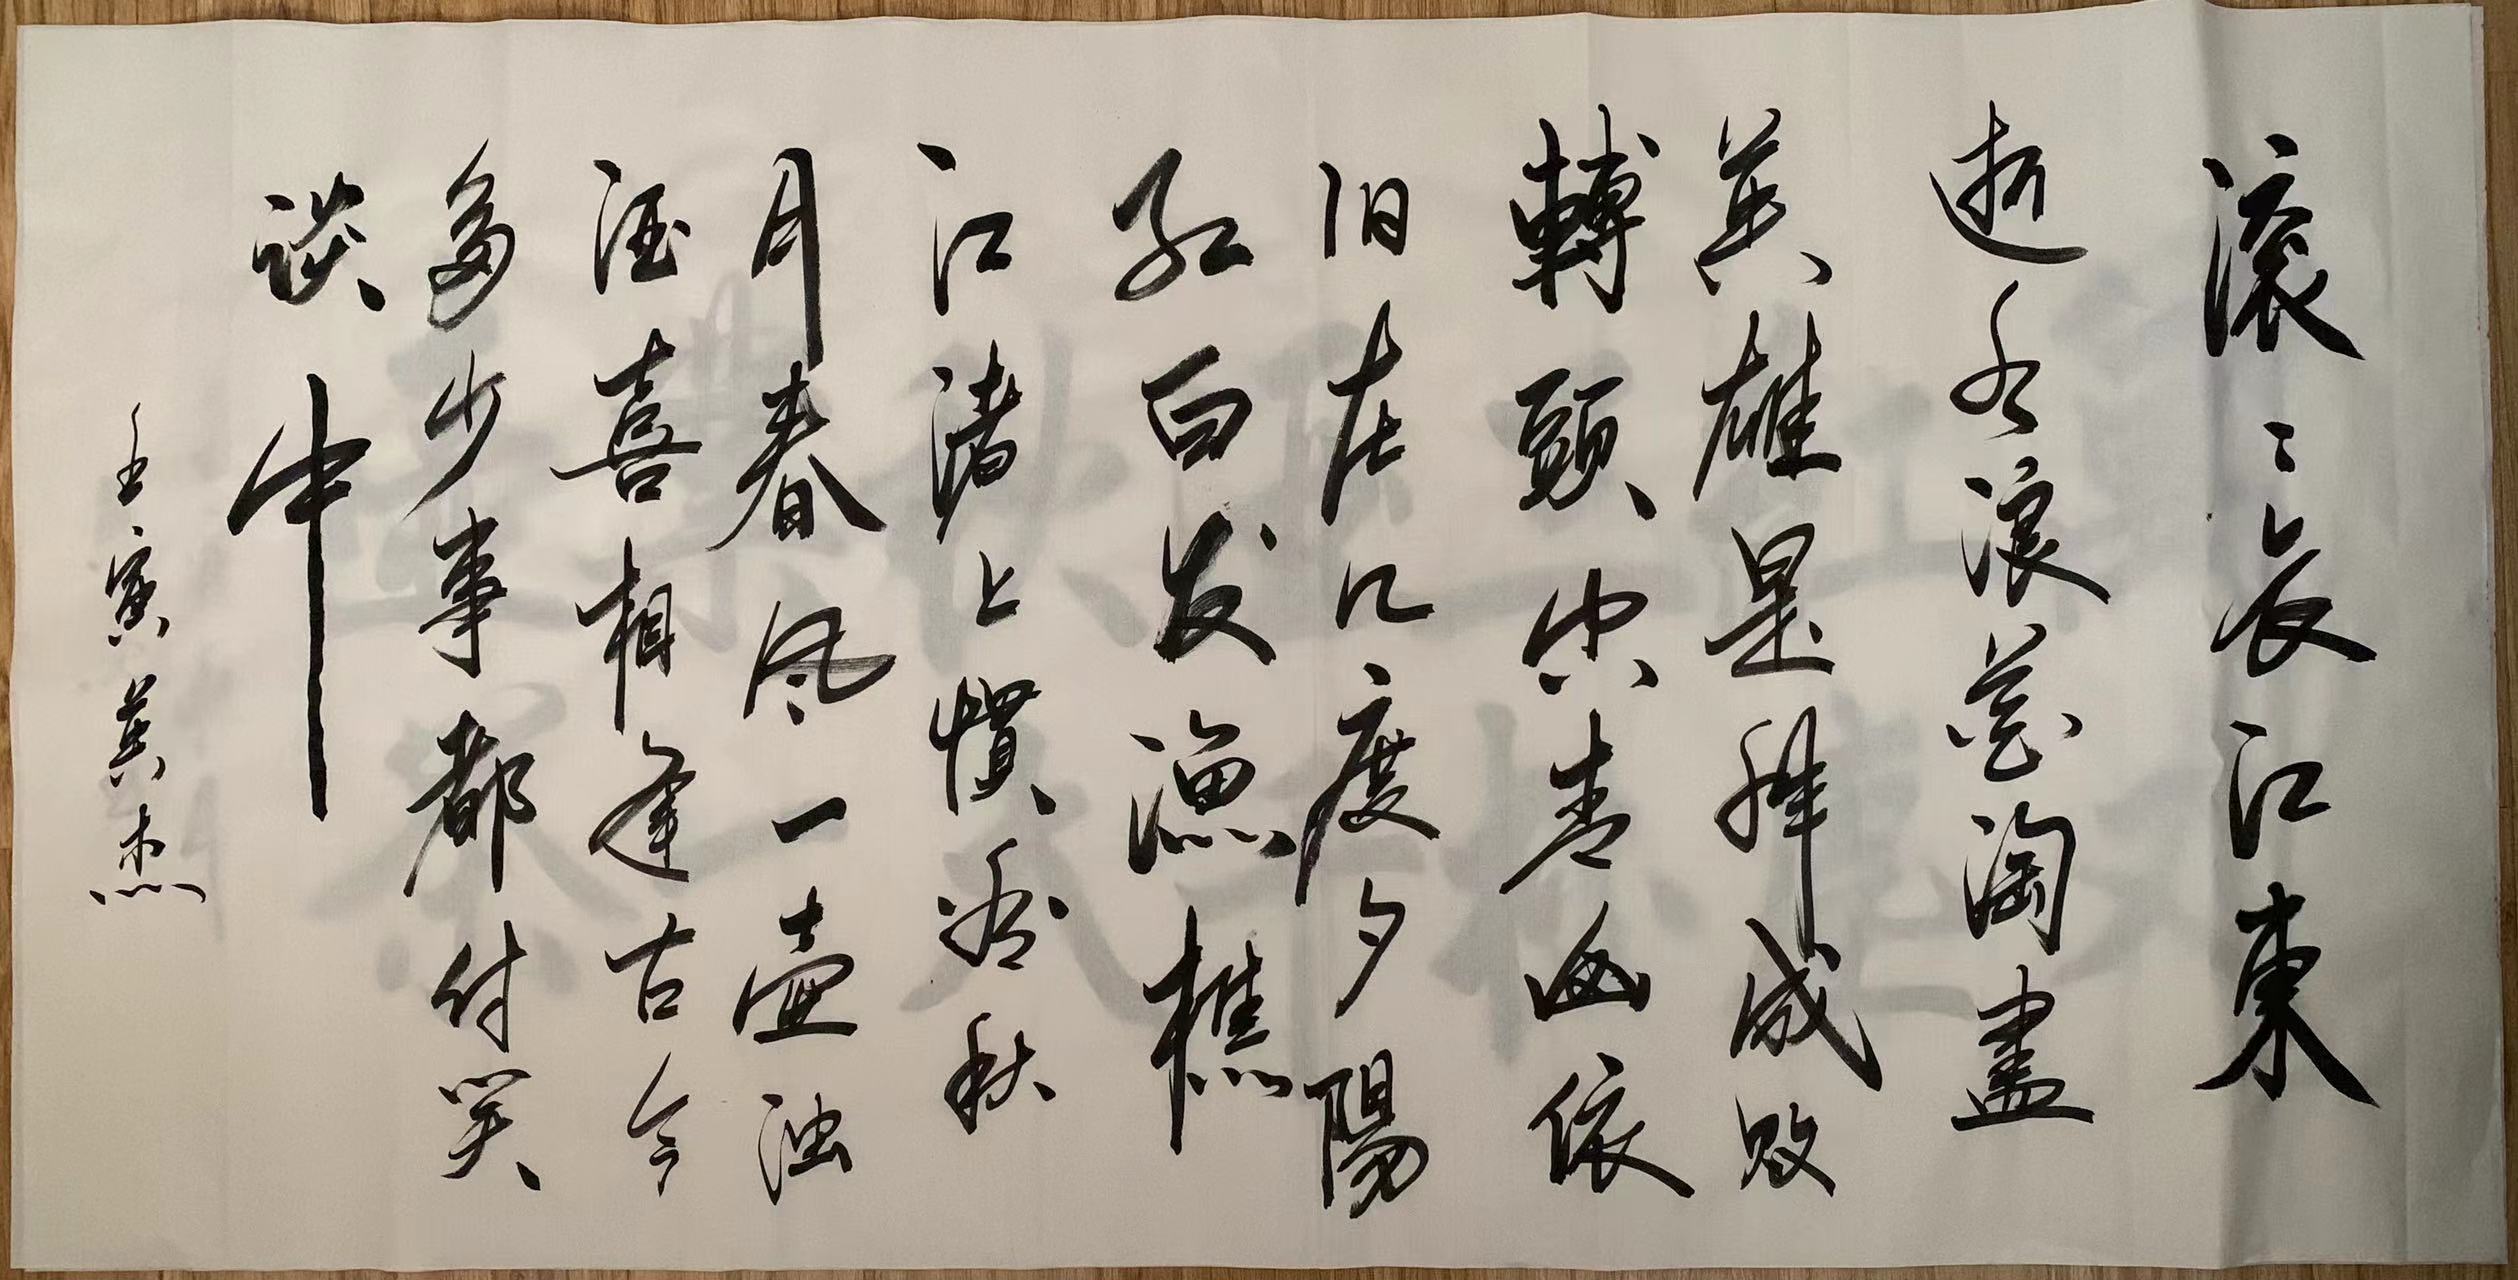 滚〻长江東
逝水浪花淘盡
英雄是非成败
轉頭空青山依
旧在几度夕陽
红白发漁樵
江渚上慣看秋
月春风一壶浊
酒喜相逢古今
多少事都付笑
谈中
壬寅英杰